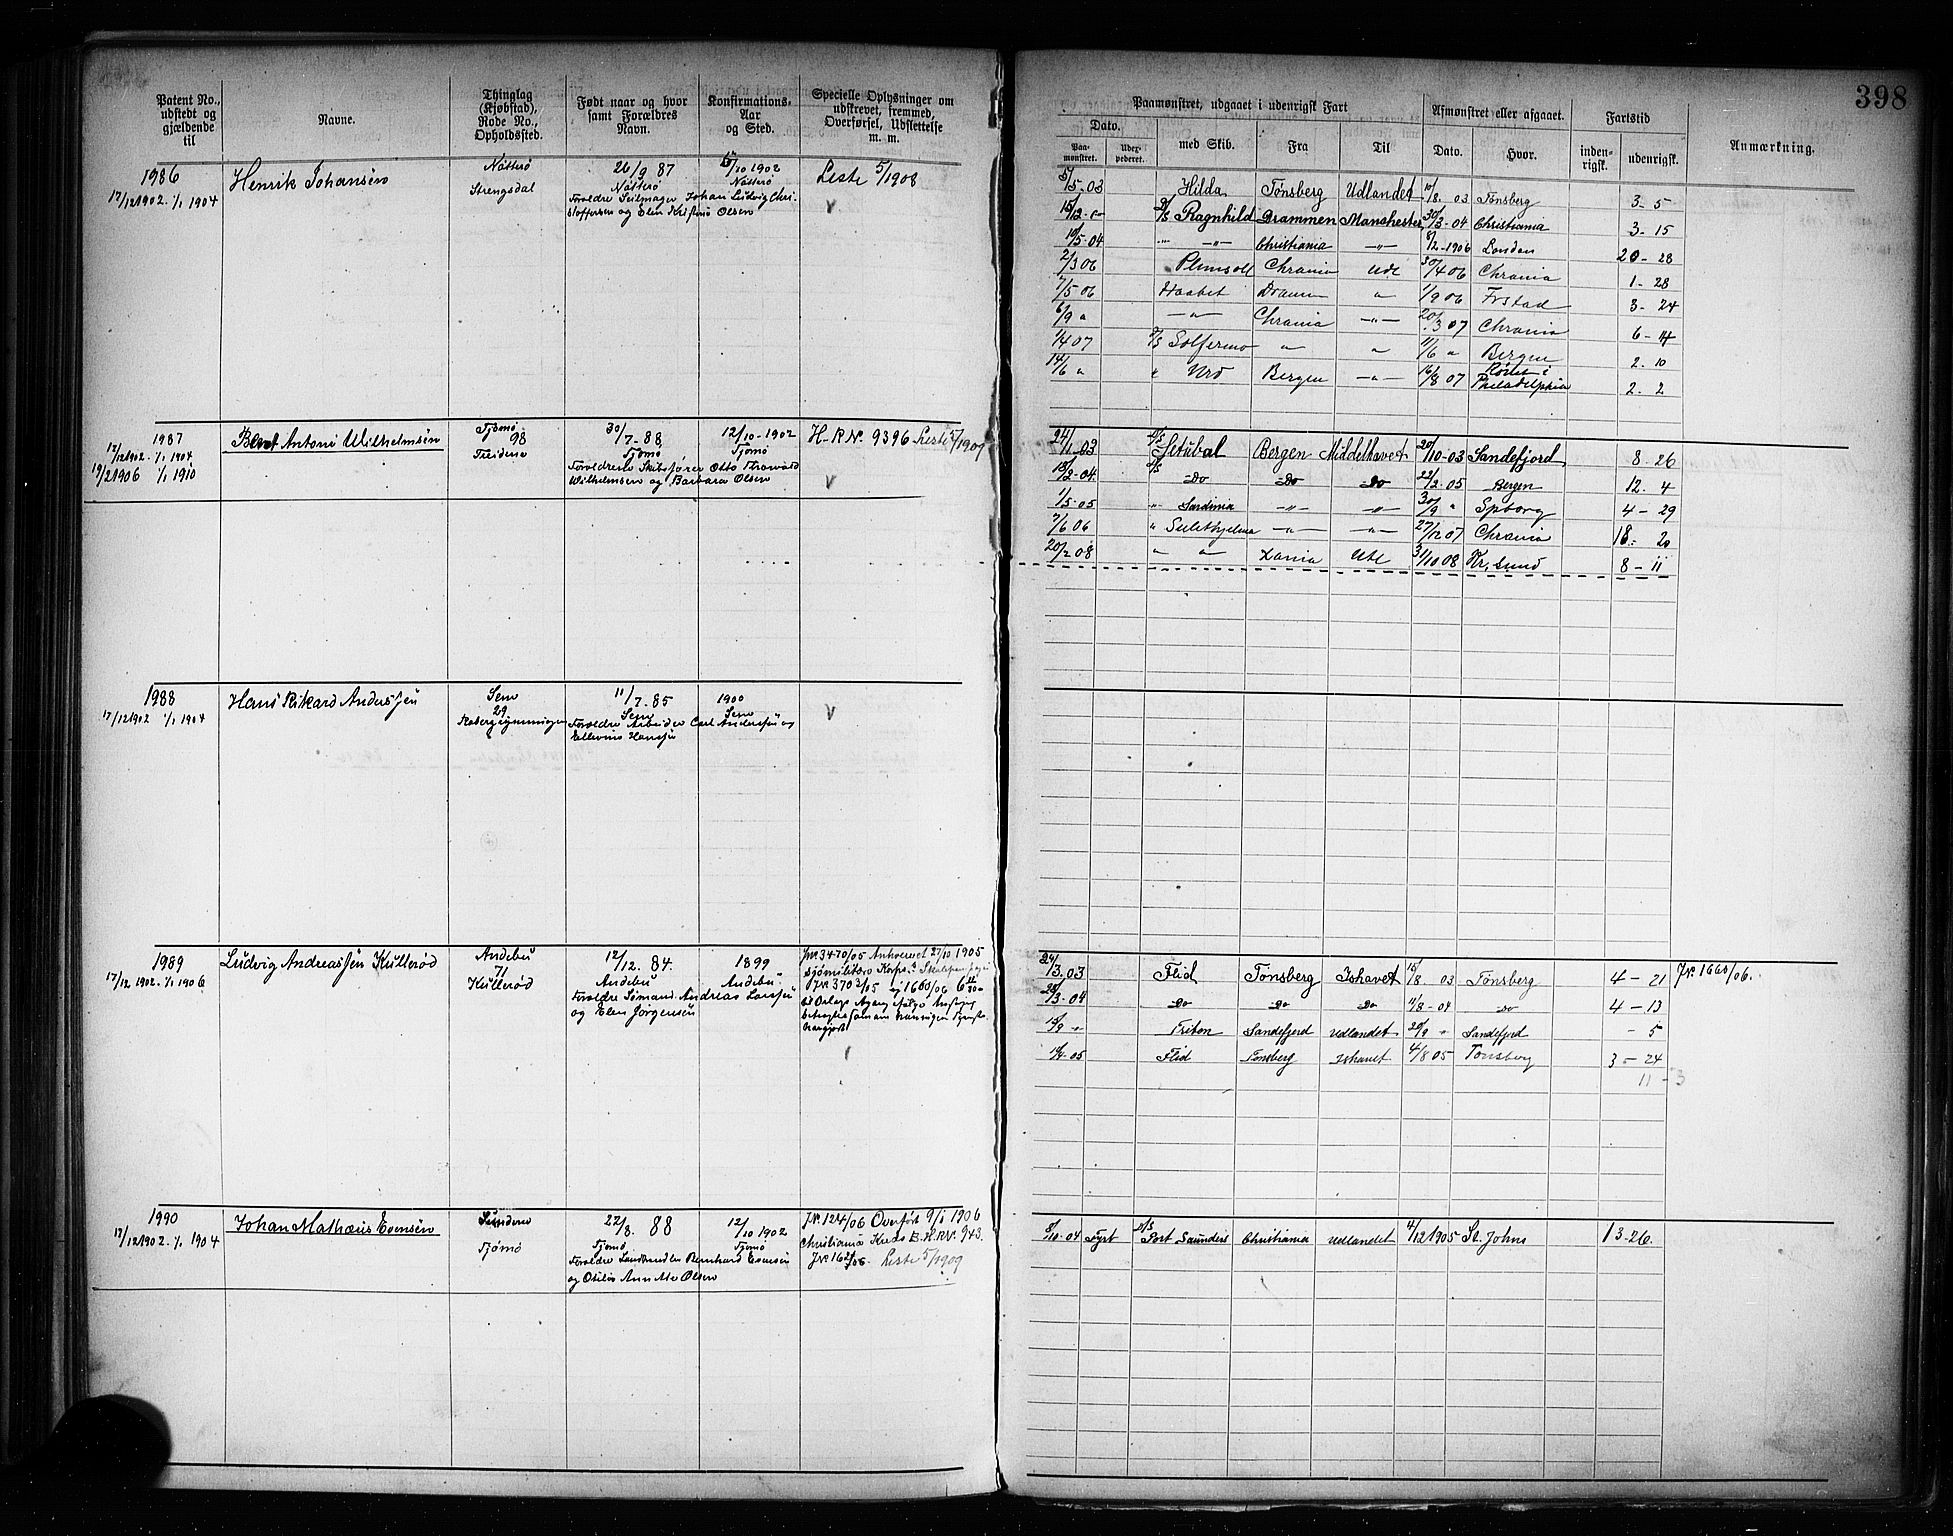 398
Patent No., udstedt og gjældende til
Navne.
Thinglag (Kjøbstad), Rode No., Opholdssted.
Født naar og hvor samt Forældres Navn.
Konfirmations-Aar og Sted.
Specielle Oplysninger om udskrevet, fremmed, Overførsel, Udslettelse m. m.
Paamønstret, udgaaet i udenrigsk Fart
Dato.
Paa-mønstret.
med Skib.
Fra
Til
Afmønstret eller afgaaet.
Dato.
Hvor.
Fartstid
inden-rigsk.
udenrigsk.
Anmærkning.
1986
17/12 1902. 1/1 1904
Henrik Johansen
Nøtterø
Strengsdal
26/9 87
Nøtterø
/10 1902
Nøtterø
Forældre Seilmager Johan Ludvig Chri-
stoffersen og Elen Kristine Olsen
Liste 5/1908
V
5/5-03 Hilda Tønsberg Udlandet /8 03 Tønsberg 3-5
15/12 Ragnhild Drammen Manchester 30/3-04 Christiania 3-15
10/5-04 -"- Christiania -"- 8/2-1906 London 20-28
2/3 06 Plimsoll Chrania Udl 30/4 06 Chrania 1-28
7/5 06 Haabet Dramen " 1/9 06 Frstad 3-24
6/9 " -"- Chrania -"- 20/3 07 Chrania 6-14
1/4 07 Solferino " " 11/6 " Bergen 2.10
14/6 " " Urd Bergen -"- 16/8 07 Rømt i Philadelphia 2-2
1987
17/12 1902. 1/1 1904
19/2 1906 1/1 1910
Bernt Antoni Wilhelmsen
Tjømø
98
Treidene
30/7-88
Tjømø
12/10-1902
Tjømø
Forældrene Skibsfører Otto Thorvald
Wilhelmsen og Barbara Olsen
H-R No. 9396 Liste 5/1909
V
24/1-03 Setubal Bergen Middelhavet 20/10-03 Sandefjord 8-26
18/2-04 Do Do Do 22/2-05 Bergen 12.4
1/5-05 " Sardinia -"- -"- 30/9 " Spborg 4-29
7/6 06 " Sulithjelma -"- -"- 27/12 07 Chrania 18-20
20/2 08 " " Xania Utl 31/10 08 Kr,sund 8-11
1988
17/12 1902 1/1 1904
Hans Rikard Anderssen
Sem
29
11/7-85
Sem
1900
Sem
Forældre Arbeider Carl Anderssen og
Ellevine Hanssen
V
1989
17/12 1902. 1/1 1906
Ludvig Andreassen Kullerød
Andebu
71
Kullerød
12/12. 84.
Andebu
1899
Andebu
Forældre Sømand Andreas Larssen
og Elen Jørgensen
JNo 3470/05 Anhoevet 27/10 1905
sjømilitære Korps:
JNo 3703/05 og 1660/06
V
24/3.03 Flid Tønsberg Ishavet 15/8 03 Tønsberg 4-21 JNo 1660/06.
28/3-04 Do Do Do 11/8-04 Do 4-13
15/9 " Triton Sandefjord Udlandet 20/9 " Sandefjord -5
05 Flid Tønsberg Ishavet 4/8 05 Tønsberg 3-24
11-3
1990
17/12 1902. 1/1 1904
Johan Mathæus Evensen
Sundene
Tjømø
22/8. 88
Tjømø
12/10 1902
Tjømø
Forældre Landmand Bernhard Evensen
og Otilie Annette Olsen
JNo 124/06 Overført 9/1 1906
Christiania Kreds B.H.R No. 943.
JNo 162/06. Liste 5/1909
8/10-04 Fyrb Port Saunders Christiania Udlandet 4/12 1905 St. Johns 13-26.